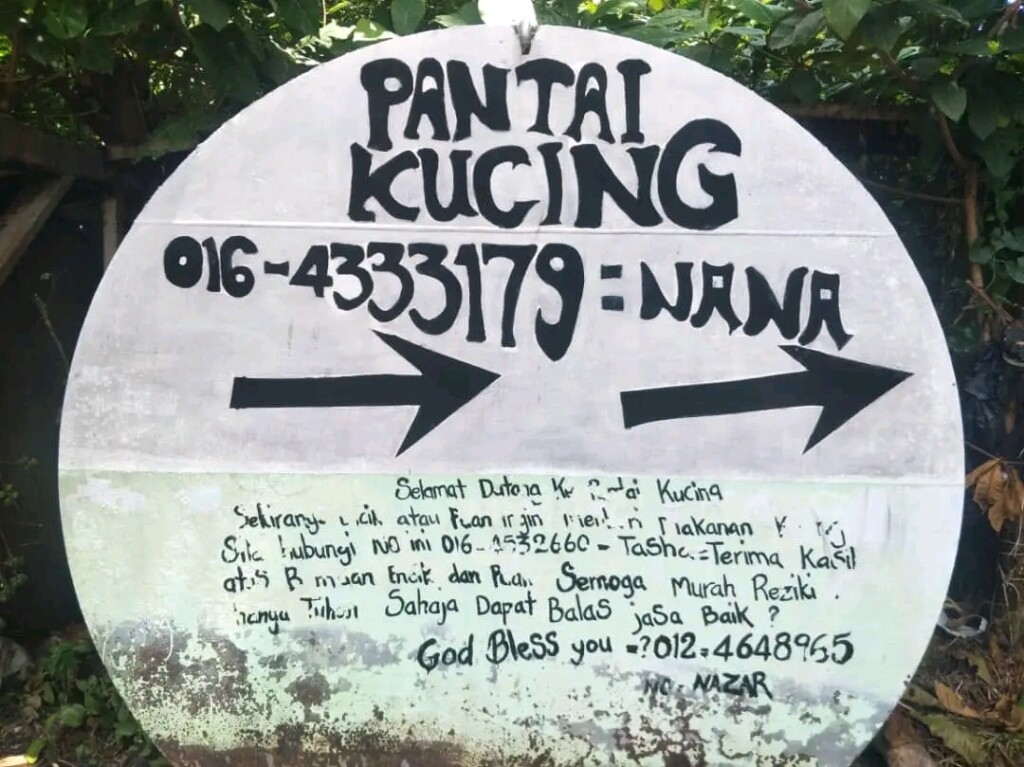 PANTAI
KUCING
016-4333179=NANA
Selamat Datang Ke Pantai Kucing
Sekiranya Encik atau Puan ingin memberi makanan
Sila hubungi No ini 016-4532660-Tasha=Terima Kasih
atas Bantuan Encik dan Puan Semoga Murah Reziki.
hanya Tuhan Sahaja Dapat Balas jasa Baik ?
God Bless you =?012=4648965
NO-NAZAR